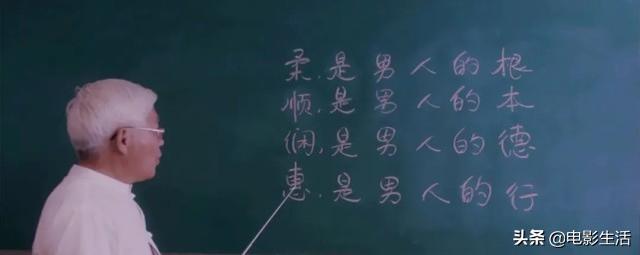 柔,是男人的根
顺,是男人的本
,是男人的德
惠,是男人的行
头条 @电影生活